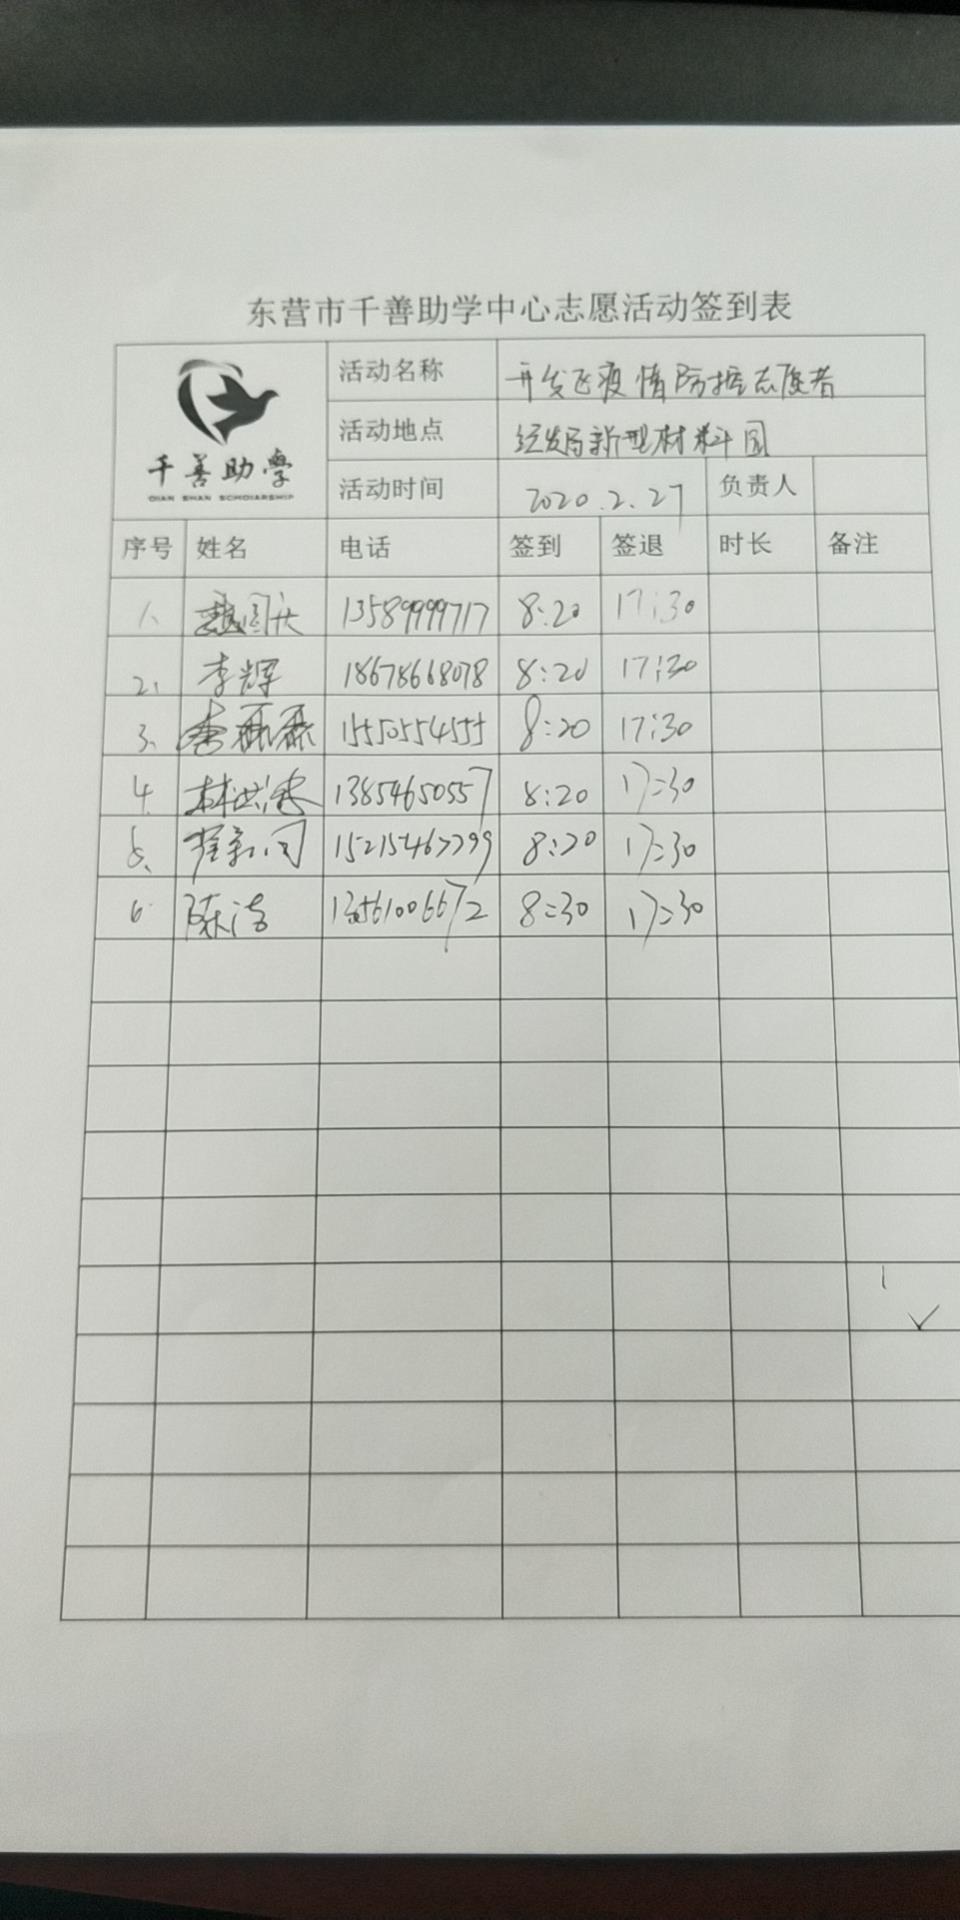 东营市千善助学中心志愿活动签到表
千善助學
QIAN SHAN SCHOLARSHIP
活动名称 开发区疫情防控志愿者
活动地点 经发局新型材料园
活动时间 2020.2.27 负责人
序号 姓名 电话 签到 签退 时长 备注
1、 13589999717 8:20 17:30
2、 李辉 18678668078 8:20 17:30
3、 李磊磊 15550554555 8:20 17:30
4. 13854650557 8:20 17:30
5、 15215467799 8:20 17:30
6. 陈洁 8:30 17:30